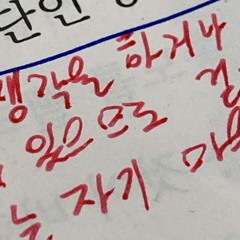 단인
생각을 하거나
있으므로
는 자기 마